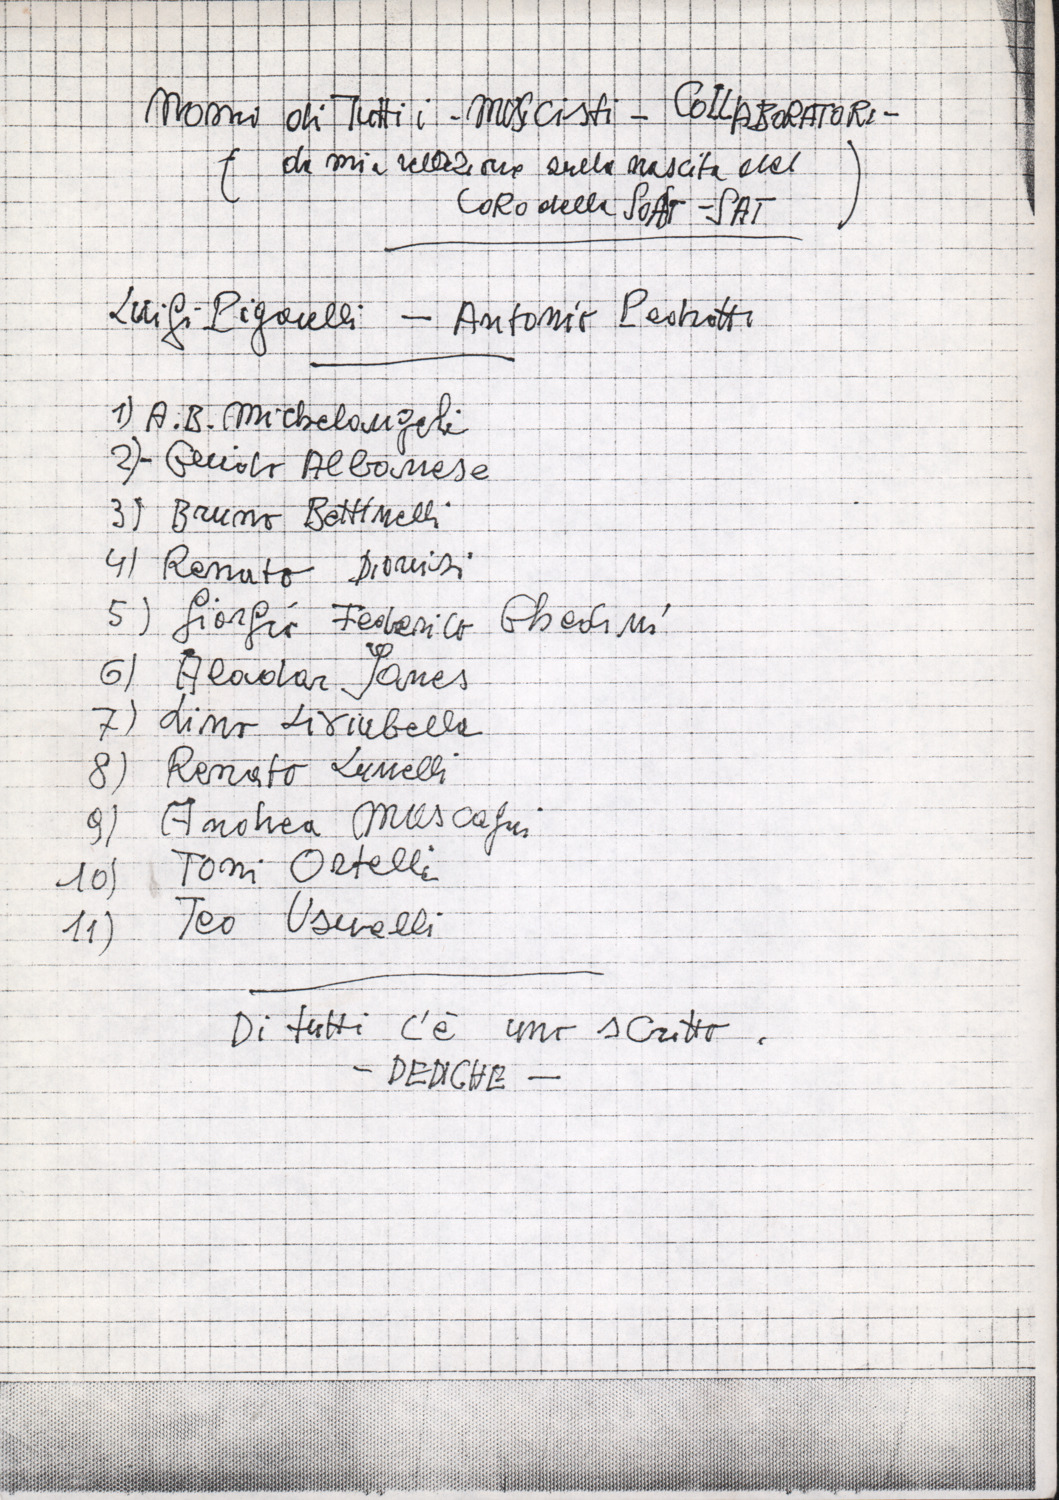 Nomi di Tutti i - MUSicisti - COLLABORATORI -
( da mia relazione sulla nascita del
CORO della SOAT - SAT )
Luigi Pigarelli - Antonio Pedrotti
1) A.B. Michelangeli
2)- Guido Albanese
3) Bruno Bettinelli
4) Renato Dionisi
5) Giorgio Federico Ghedini
6) Aladar Janes
7) Lino Liviabella
8) Renato Lunelli
9) Andrea Mascagni
10) Toni Ortelli
11) Teo Usuelli
Di tutti c'è uno scritto .
- DEDICHE -